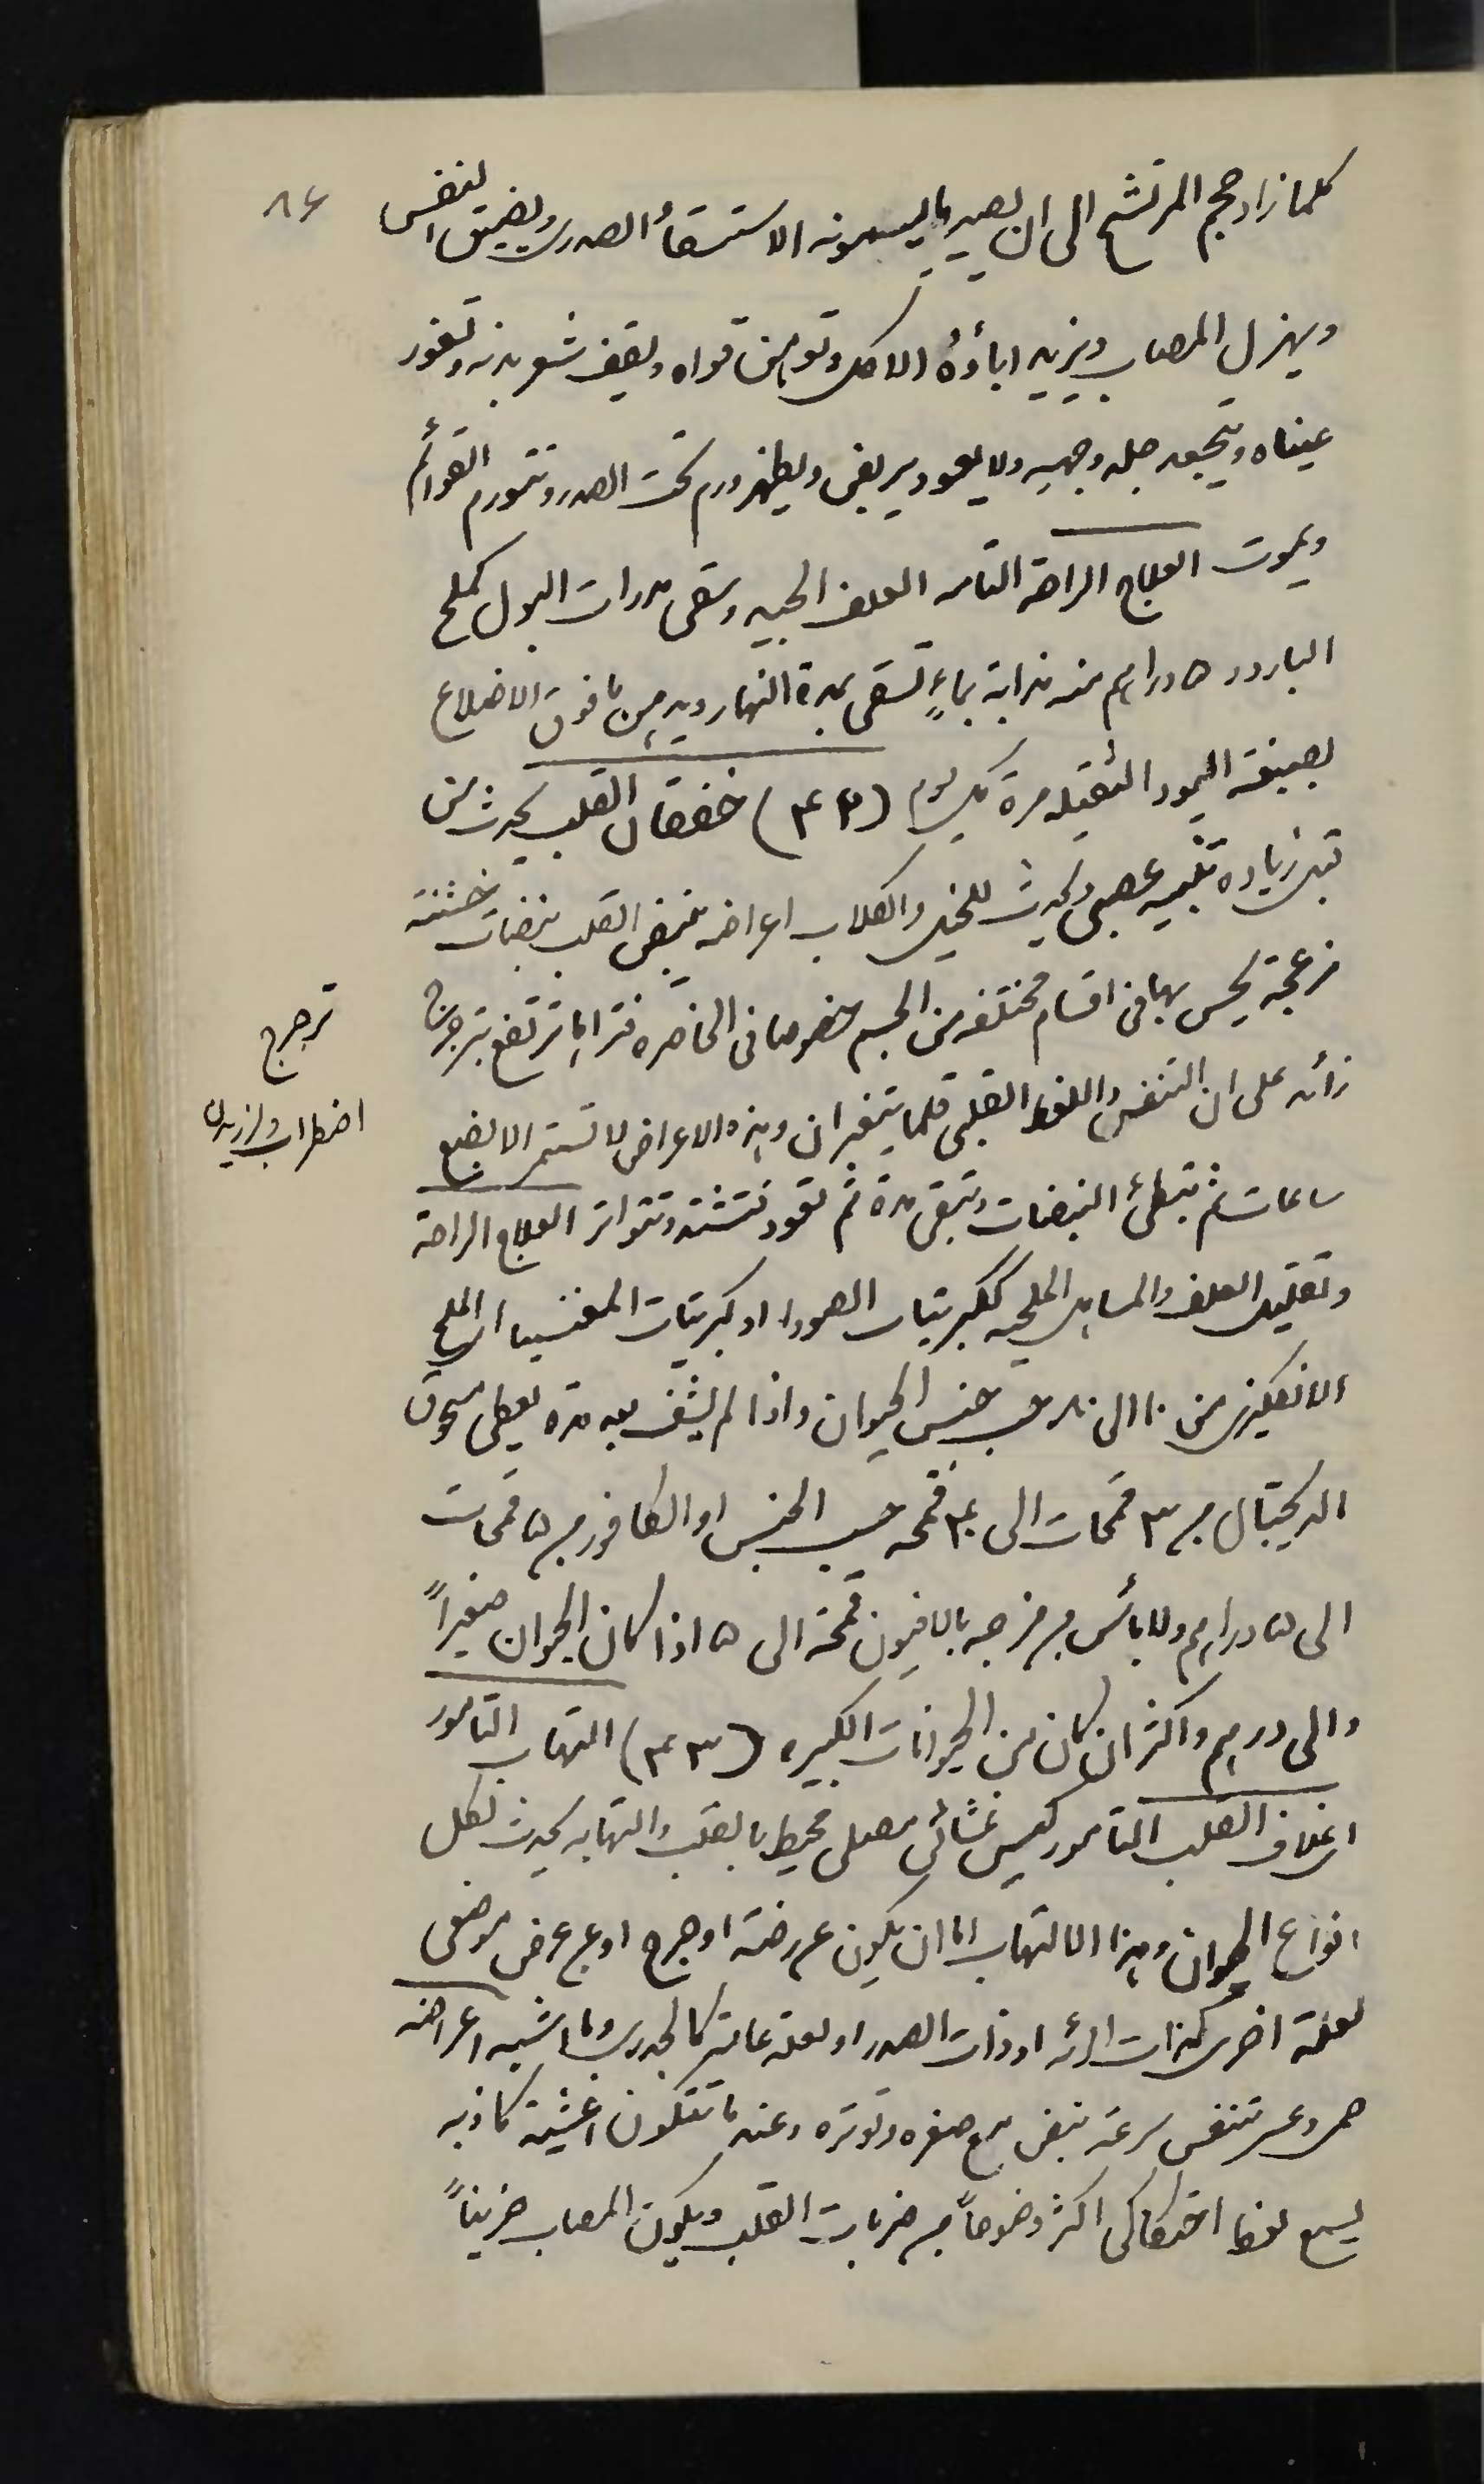 ٨٤
كلما زاد حجم المرتشح الى ان يصير ما يسمونه الاستسقاء الصدرى ويضيق النفس
ويهزل المصاب ويزيد اباؤه الاكل وتوهن قواه ويقف شعر بدنه وتغور
عيناه ويتجعد جلد وجهه ولا يعود يربض ويظهر ورم تحت الصدر وتتورم القوائم
ويموت العلاج الراحة التامه العلف الجيد وسقى مدرات البول كملح
البارود ٥ دراهم منه مذابة بماءٍ تسقى بمدة النهار ويدهن ما فوق الاضلاع
بصبغة اليود الثقيله مرة كل يوم (٤٢) خفقان القلب يحدث من
قبل زياده تنبيه عصبى ويحدث للخيل والكلاب اعراضه ينبض القلب نبضات خشنة
مزعجة يحس بها فى اقسام مختلفه من الجسم خصوصا فى الخاصره فتراها ترتفع بترجرج
زائد على ان التنفس واللغط القلبى قلما يتغيران وهذه الاعراض لا تستمر الا بضع
ساعات ثم تبطئ النبضات وتبقى مدة ثم تعود فتشتد وتتواتر العلاج الراحة
وتقليل العلف والمساهل الملحيه ككبريتات الصودا او كبريتات المغنسيا اى الملح
الانكليزى من ١٠ الى ٨٠ حسب جنس الحيوان واذا لم يشف بعد مدة يعطى مسحوق
الديجيتال من ٣ قمحات الى ٤٠ قمحه حسب الجنس او الكافور من ٥ قمحات
الى ٥ دراهم ولا بأس من مزجه بالافيون قمحة الى ٥ اذا كان الحيوان صغيراً
والى درهم واكثر ان كان من الحيوانات الكبيره (٤٣) التهاب التامور
اى غلاف القلب التامور كيس غشائى مصلى محيط بالقلب والتهابه يحدث لكل
انواع الحيوان وهذا الالتهاب اما ان يكون عن رضة او جرح او عن عرض مرضى
لعلة اخرى كذات الرئه او ذات الصدر او لعلة عامة كالجدرى وما اشبه اعراضه
حمى وعسر تنفس سرعة نبض مع صغره وتوتره وعند ما تتكون اغشية كاذبه
يسمع لغط احتكاكى اكثر وضوحاً من ضربات القلب ويكون المصاب حزيناً
ترجرج
اضطراب